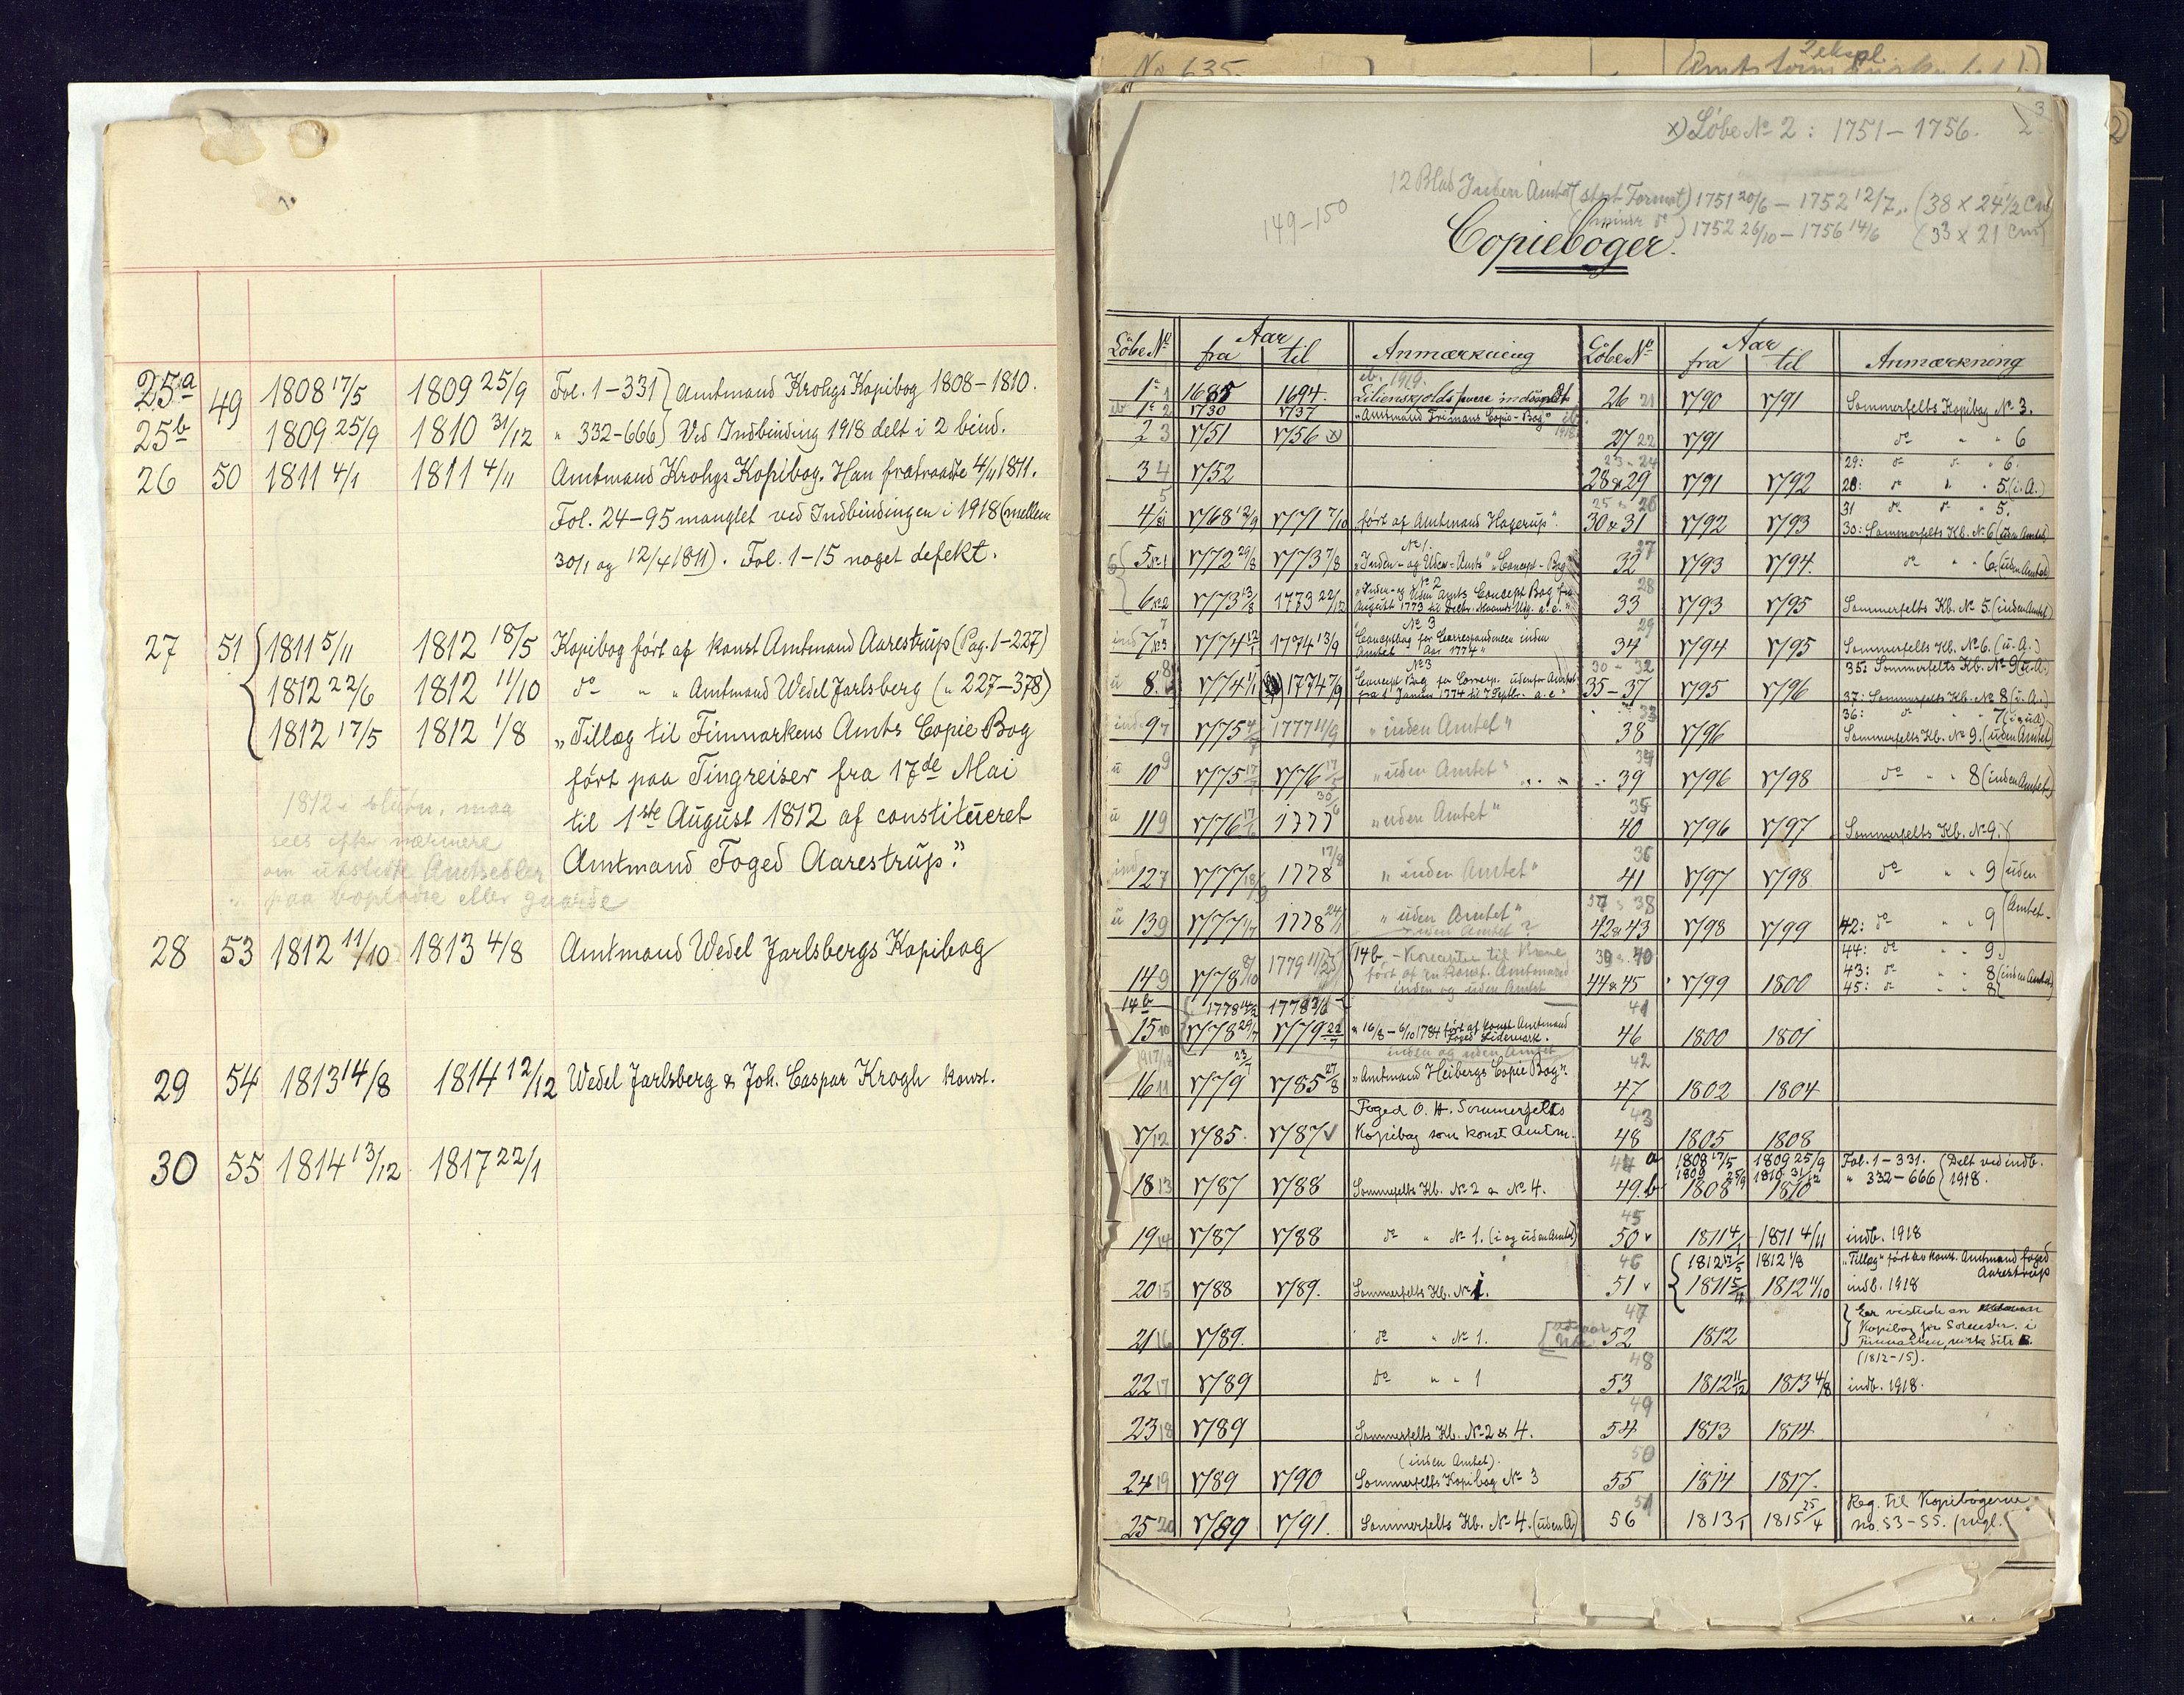 25a 49 1808 17/5 1809 25/9 Fol. 1-331 } Amtmand Kroghs Kopibog 1808-1810.
25b 1809 25/9 1810 31/12 " 332-666 } Ved Indbinding 1918 delt i 2 bind.
26 50 1811 4/1 1811 4/11 Amtmand Kroghs Kopibog. Han fratraadte 4/11 1811.
Fol. 24-95 manglet ved Indbindingen i 1918 (mellem
30/1 og 12/4 1811). Fol. 1-15 noget defekt.
27 51 { 1811 5/11 1812 18/5 Kopibog ført af konst Amtmand Aarestrup (Pag. 1-227)
1812 22/6 1812 11/10 do " " Amtmand Wedel Jarlsberg (" 227-378)
1812 17/5 1812 1/8 "Tillæg til Finmarkens Amts Copie Bog
ført paa Tingreiser fra 17de Mai
til 1ste August 1812 af constitueret
Amtmand Foged Aarestrup."
1812 i slutn. maa
sees efter nærmere
om udslette
paa eller
28 53 1812 11/10 1813 4/8 Amtmand Wedel Jarlsbergs Kopibog
29 54 1813 14/8 1814 12/12 Wedel Jarlsberg & Joh. Caspar Krogh konst.
30 55 1814 13/12 1817 22/1
No 635.
2 ekspl.
3
x) Löbe No 2: 1751-1756. 2
12 Blad Inden Amtet (stort Format) 1751 20/6 - 1752 12/7. (38 x 24 1/2 cm)
149-150 (mindre do) 1752 26/10 - 1756 14/6 (33 x 21 cm)
Copieböger.
Löbe No Aar fra til Anmærkning Löbe No Aar fra til Anmærkning
1a 1 1685 1694. Lilienskjolds
ib. 1919.
1b 2 1730 1737 "Amtmand Frimans Copie-Bog"
2 3 1751 1756 x)
3 4 1752
4 5 1768 12/9 1771 7/10 ført af Amtmand Hagerup".
5 No 1 1772 29/8 1773 7/8 No 1. "Inden- og Uden-Amts" "Concept-Bog"
6 No 2 1773 13/8 1773 22/12 No 2 "Inden- og Uden Amts Concept Bog fra
August 1773 til Decbr. Maaneds Udg. a. c."
ind 7 No 3 1774 12/1 1774 13/9 No 3 Conceptbog for Correspondencen inden
Amtet Aar 1774"
u 8. 1774 1/1 1774 7/9 No 3 "Concept Bog for Corresp. udenfor Amtet
fra 1 Januar 1774 til 7 Septbr. a. c."
ind. 9 7 1775 4/7 1777 11/9 "inden Amtet"
u 10 9 1775 17/7 1776 17/5 "uden Amtet"
u 11 9 1776 17/6 1777 30/6 "uden Amtet"
ind 12 7 1777 18/9 1778 17/8 "inden Amtet"
u 13 9 1777 1/7 1778 24/1 "uden Amtet"
uden Amtet?
14 9 1778 8/10 1779 11/2 14b - Koncepter til
ført af en konst. Amtmand
inden og uden Amtet
14b 1778 14/2 1778 3/6
15 10 1778 29/7 1779 22/7 " 16/8 - 6/10 1784 ført af konst. Amtmand
Foged Lidemark.
inden og uden Amtet
16 11 1779 23/7 1785 27/8 "Amtmand Heibergs Copie Bog".
17 12 1785. 1787 Foged O. H. Sommerfelts
Kopibog som konst Amtm.
18 13 1787 1788 Sommerfelts Kb. No 2 & No 4.
19 14 1787 1788 do " No 1. (i og uden Amtet)
20 15 1788 1789. Sommerfelts Kb. No 1.
21 16 1789. do " No 1.
22 17 1789 do " " 1
23 18 1789 Sommerfelts Kb. No 2 & 4.
(inden Amtet).
24 19 1789 1790 Sommerfelts Kopibog No 3
25 20 1789 1791. Sommerfelts Kb. No 4. (uden A)
26 21 1790 1791 Sommerfelts Kopibog No 3.
27 22 1791 do " " 6
23 - 24
28 & 29 1791 1792 29: do do " 6.
28: do " " 5. (i. A.)
25 - 26
30 & 31 1792 1793 31 do do " 5.
30: Sommerfelts Kb. No 6 (uden Amtet)
27
32 1793 1794. do " " 6. (uden Amtet)
28
33 1793 1795 Sommerfelts Kb. No 5. (inden Amtet)
29
34 1794 1795 Sommerfelts Kb. No 6. (u. A.)
30 - 32
35-37 1795 1796 35: Sommerfelts Kb. No 9 (u. A.)
37: Sommerfelts Kb. No 8 (i. A.)
36: do " " 7 (i & u A)
33
38 1796 Sommerfelts Kb. No 9. (uden Amtet)
34
39 1796 1798 do " " 8 (inden Amtet)
35
40 1796 1797 Sommerfelts Kb. No 9.
36
41 1797 1798 do " " 9 (uden
37 & 38
42 & 43 1798 1799 42: do " " 9 Amtet-
39 & 40
44 & 45 1799 1800 44: do " " 9.
43: do " " 8 (inden Amtet)
45: do " " 8
41
46 1800 1801
42
47 1802 1804
43
48 1805 1808
44 a 1808 17/5 1809 25/9 Fol. 1-331. { Delt ved indb.
49. b 1809 25/9 1810 31/12 " 332-666 { 1918.
1808 1810
45
50 1811 4/1 1811 4/11 indb. 1918
46 { 1812 17/5 1812 1/8 "Tillæg" ført av konst. Amtmand foged
Aarestrup
51 1811 5/11 1812 11/10 indb. 1918
47
52 1812 Er vistnok en
Kopibog for Sorenskr. i
Finmarken, mrk Litr B.
(1812-15).
48
53 1812 11/12 1813 4/8 indb. 1918.
49
54 1813 1814
50
55 1814 1817.
51
56 1813 1815 25/4 Reg. til Kopibøgerne
no. 53-55.